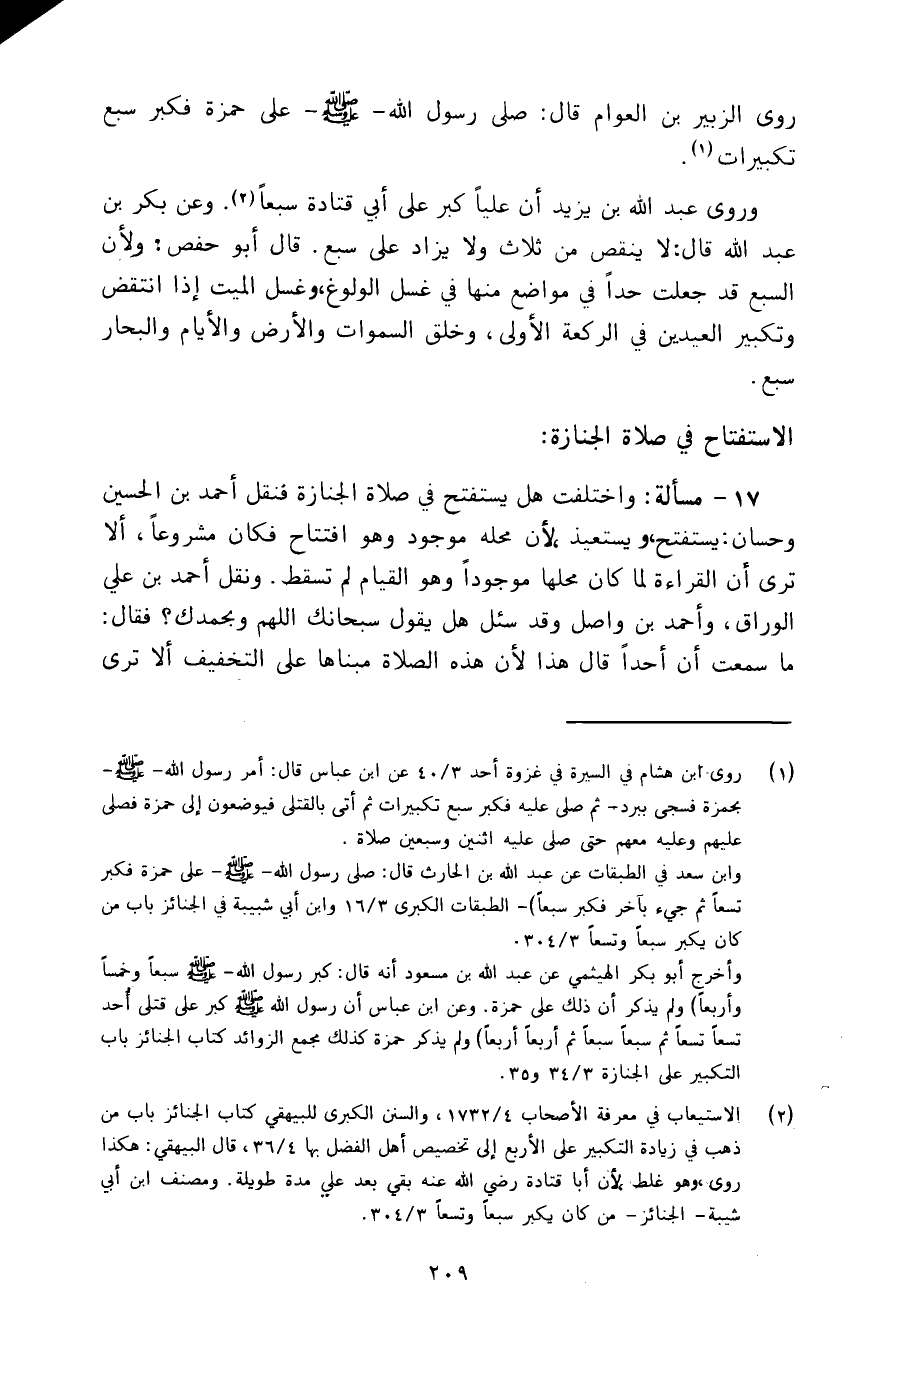 روى الزبير بن العوام قال: صلى رسول الله- ﷺ- على حمزة فكبر سبع
تكبيرات(١).
وروى عبد الله بن يزيد أن علياً كبر على أبي قتادة سبعاً(٢). وعن بكر بن
عبد الله قال:لا ينقص من ثلاث ولا يزاد على سبع. قال أبو حفص: ولأن
السبع قد جعلت حداً في مواضع منها في غسل الولوغ،وغسل الميت إذا انتقض
وتكبير العيدين في الركعة الأولى، وخلق السموات والأرض والأيام والبحار
سبع.
الاستفتاح في صلاة الجنازة:
١٧ - مسألة: واختلفت هل يستفتح في صلاة الجنازة فنقل أحمد بن الحسين
وحسان:يستفتح،و يستعيذ لأن محله موجود وهو افتتاح فكان مشروعاً، ألا
ترى أن القراءة لما كان محلها موجوداً وهو القيام لم تسقط. ونقل أحمد بن علي
الوراق، وأحمد بن واصل وقد سئل هل يقول سبحانك اللهم وبحمدك؟ فقال:
ما سمعت أن أحداً قال هذا لأن هذه الصلاة مبناها على التخفيف ألا ترى
(١) روى ابن هشام في السيرة في غزوة أحد ٤٠/٣ عن ابن عباس قال: أمر رسول الله- ﷺ-
بحمزة فسجى ببرد- ثم صلى عليه فكبر سبع تكبيرات ثم أتى بالقتلى فيوضعون إلى حمزة فصلى
عليهم وعليه معهم حتى صلى عليه اثنين وسبعين صلاة .
وابن سعد في الطبقات عن عبد الله بن الحارث قال: صلى رسول الله- ﷺ- على حمزة فكبر
تسعاً ثم جيء بآخر فكبر سبعاً)- الطبقات الكبرى ١٦/٣ وابن أبي شيبة في الجنائز باب من
كان يكبر سبعاً وتسعاً ٣٠٤/٣.
وأخرج أبو بكر الهيثمي عن عبد الله بن مسعود أنه قال: كبر رسول الله- ﷺ سبعاً وخمساً
وأربعاً) ولم يذكر أن ذلك على حمزة. وعن ابن عباس أن رسول الله ﷺ كبر على قتلى أُحد
تسعاً تسعاً ثم سبعاً سبعاً ثم أربعاً أربعاً) ولم يذكر حمزة كذلك مجمع الزوائد كتاب الجنائز باب
التكبير على الجنازة ٣٤/٣ و٣٥.
(٢) الاستيعاب في معرفة الأصحاب ١٧٣٢/٤، والسنن الكبرى للبيهقي كتاب الجنائز باب من
ذهب في زيادة التكبير على الأربع إلى تخصيص أهل الفضل بها ٣٦/٤، قال البيهقي: هكذا
روى،وهو غلط لأن أبا قتادة رضي الله عنه بقي بعد علي مدة طويلة. ومصنف ابن أبي
شيبة- الجنائز- من كان يكبر سبعاً وتسعاً ٣٠٤/٣.
٢٠٩